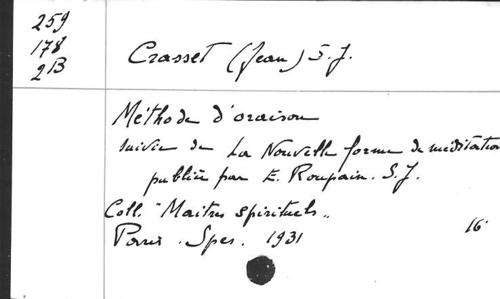 259
178
2B
Crasset (Jean) S.J.
Méthode d'oraison
suivie de La Nouvelle forme de méditation
publiée par E. Roupain. S.J.
Coll. "Maitres spirituels"
16°
Paris. Spes. 1931